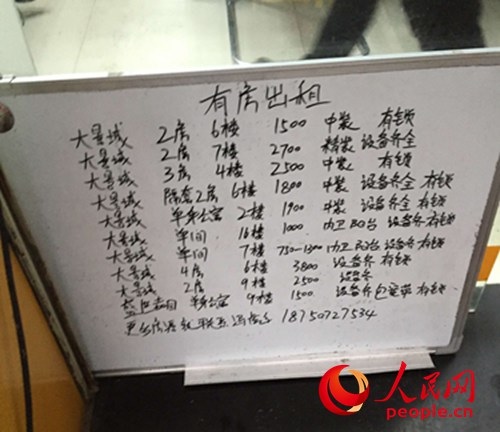 有房出租
大景城 2房 6楼 1500 中装 有锁
大景城 2房 7楼 2700 精装 设备齐全
大景城 3房 4楼 2500 中装 有锁
大景城 隔套2房 6楼 1800 中装 设备齐全 有锁
大景城 单身公寓 2楼 1900 中装 设备齐全 有锁
大景城 单间 16楼 1000 内卫 阳台 设备齐 有锁
大景城 单间 7楼 750-1300 内卫 阳台 设备齐 有锁
大景城 4房 6楼 3800 设备齐 有锁
大景城 2房 9楼 2500 设备齐
单身公寓 9楼 1500 设备齐 包宽带 有锁
更多房源 联系 18750727534
人民网
people.cn